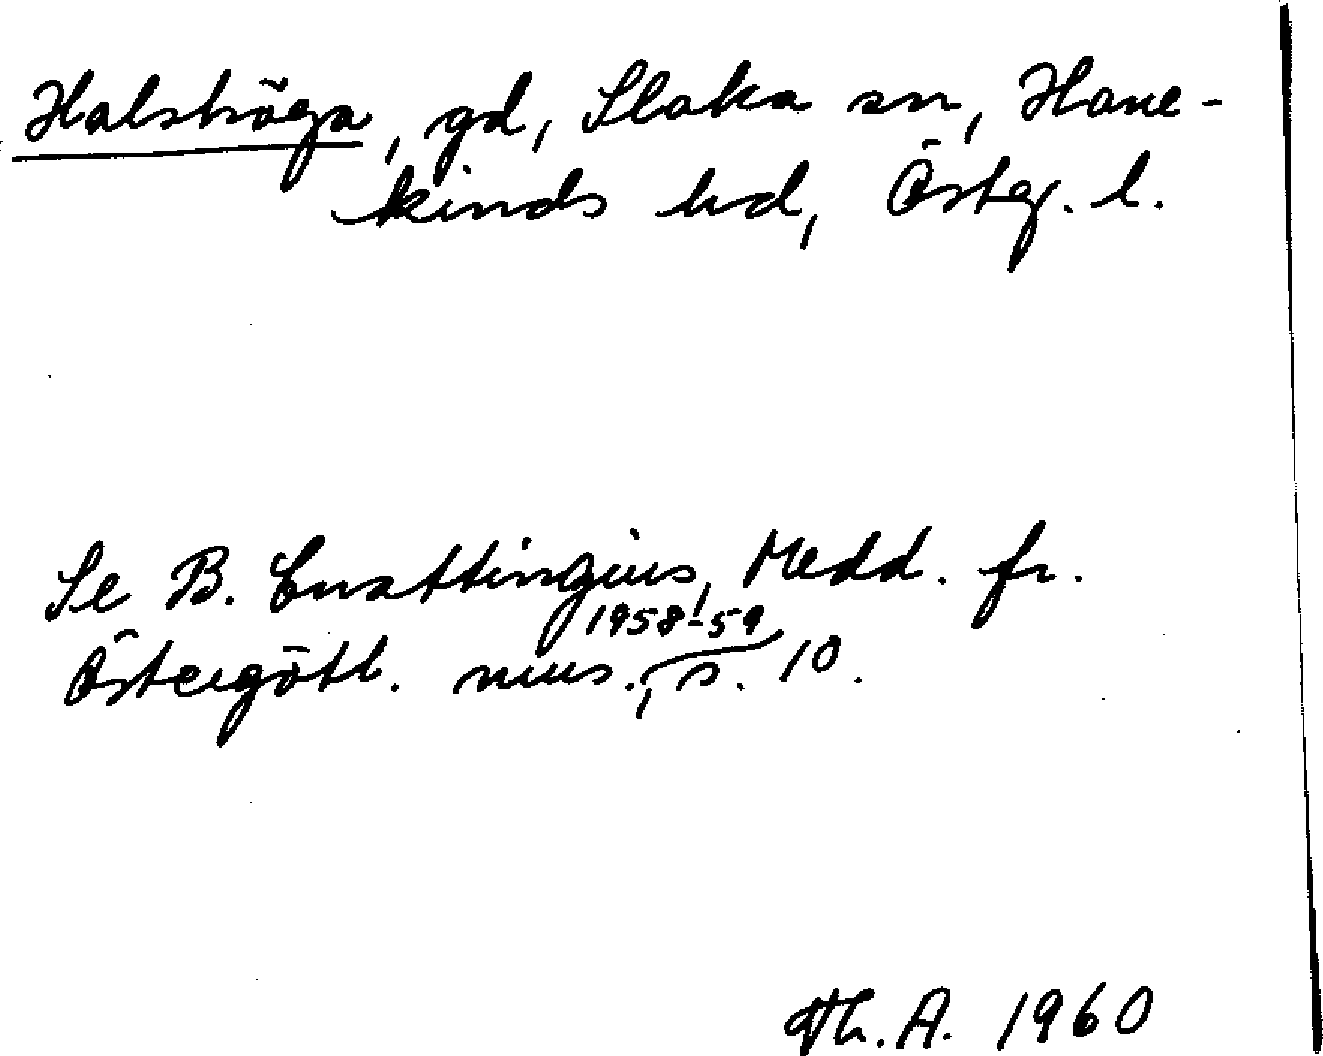 Halshöga, gd, Slaka sn, Hane-
kinds hd, Österg. l.
Se B. Cnattingius, Medd. fr.
Östergötl. mus., 1958-59, s. 10.
Th. A. 1960